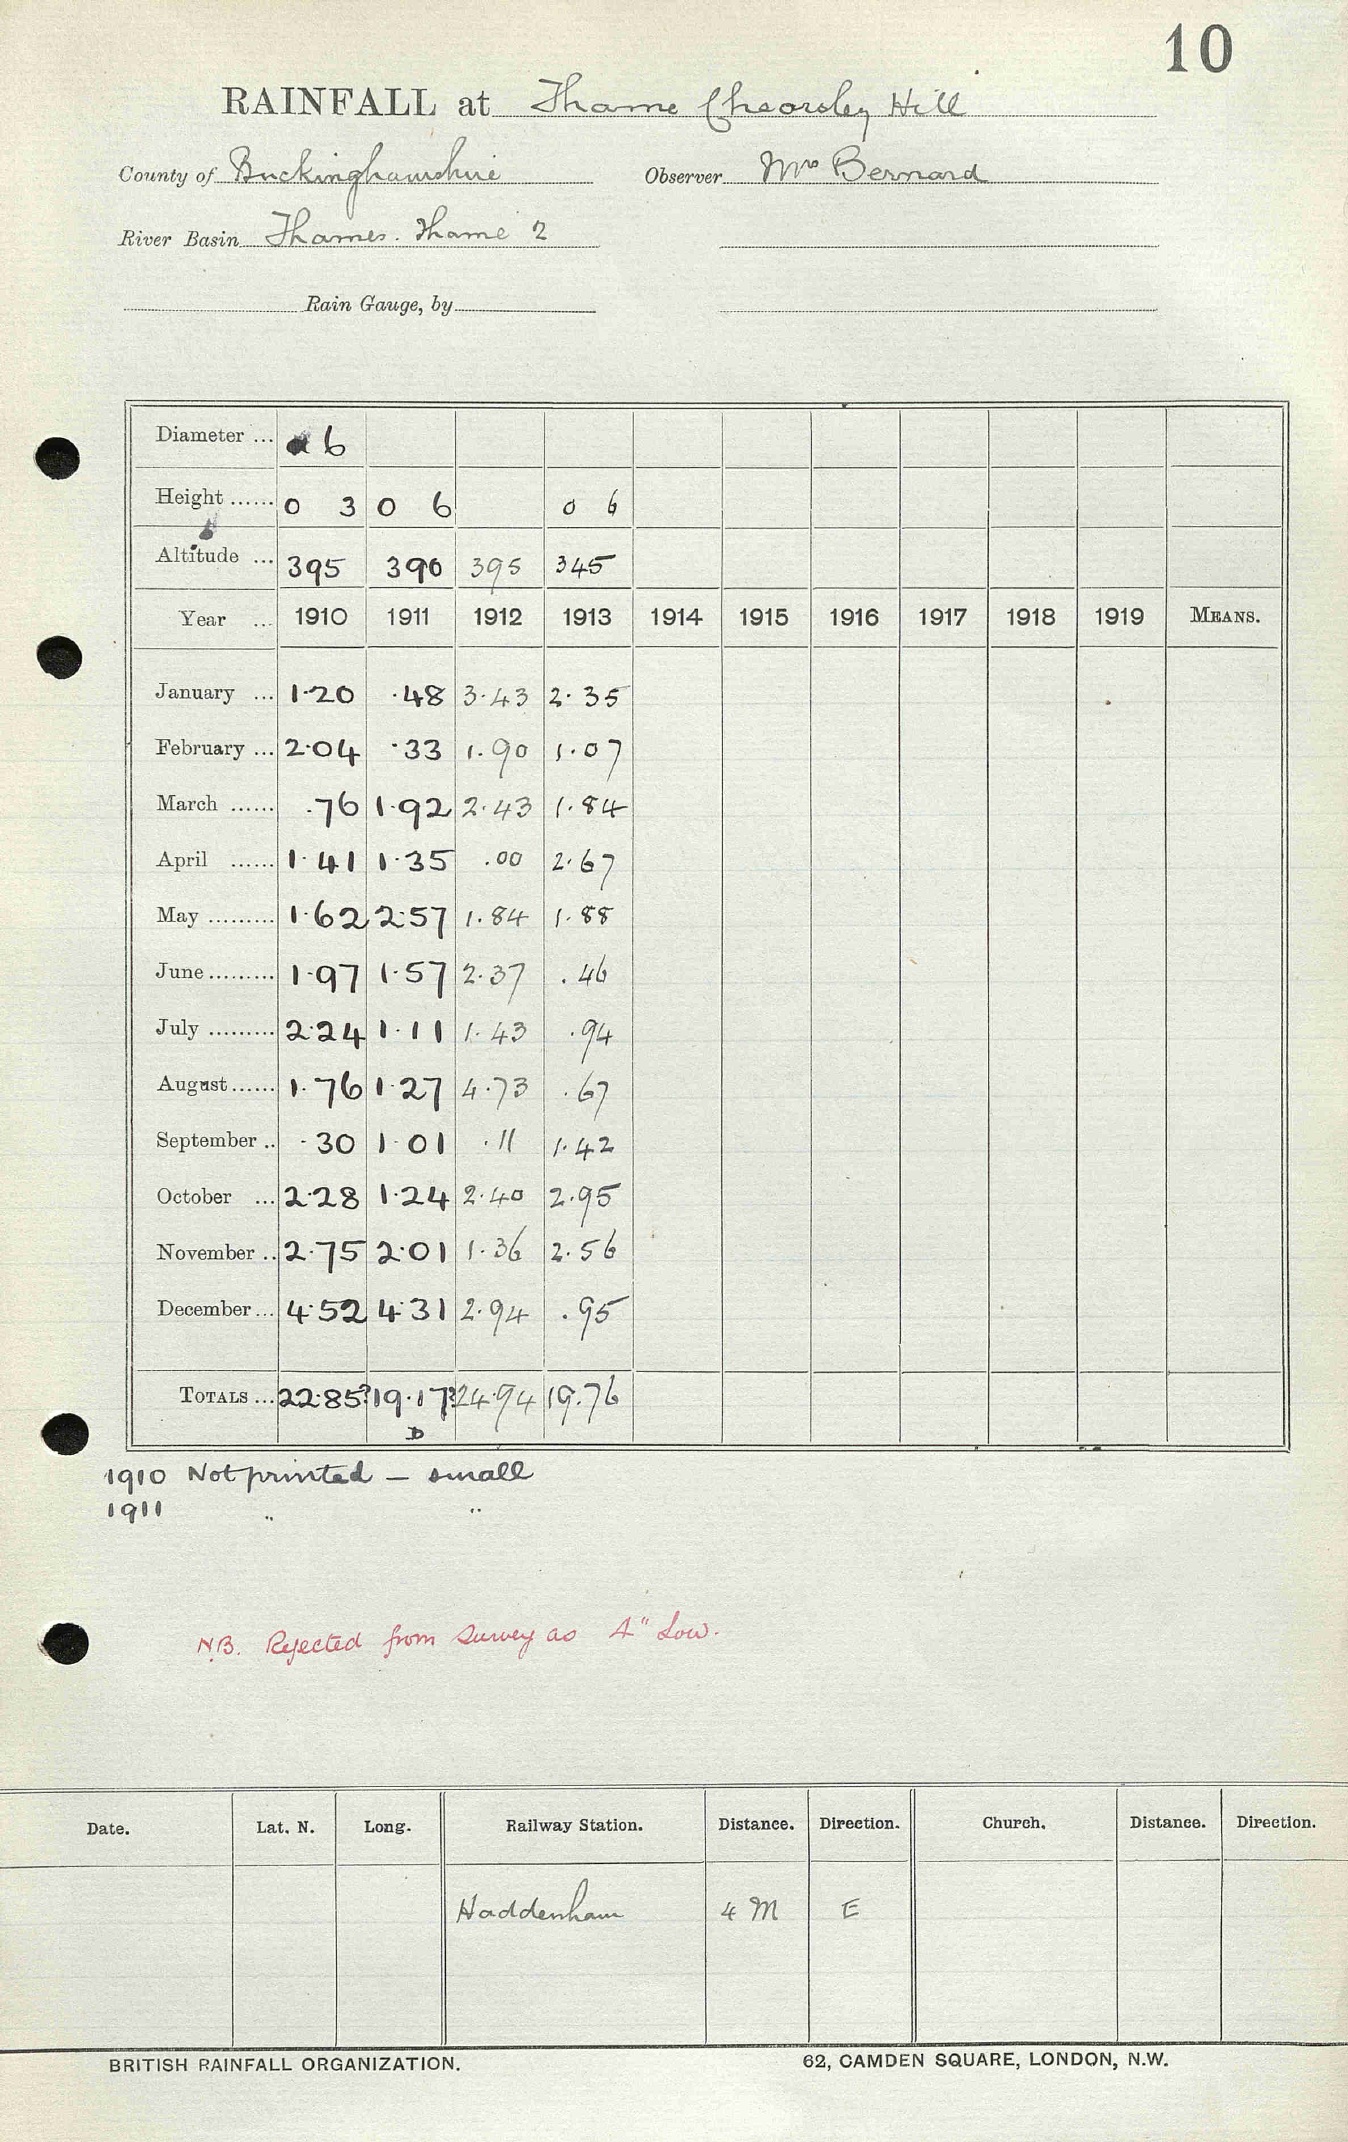 10
RAINFALL at Thame Chearsley Hill
County of Buckinghamshire Observer Mrs Bernard
River Basin Thames. Thame 2
Rain Gauge, by
Diameter ... 6
Height ...... 0 3 0 6 0 6
Altitude ... 395 390 395 345
Year ... 1910 1911 1912 1913 1914 1915 1916 1917 1918 1919 MEANS.
January ... 1.20 .48 3.43 2.35
February ... 2.04 .33 1.90 1.07
March ...... .76 1.92 2.43 1.84
April ...... 1.41 1.35 .00 2.67
May ......... 1.62 2.57 1.84 1.88
June ......... 1.97 1.57 2.37 .46
July ......... 2.24 1.11 1.43 .94
August ...... 1.76 1.27 4.73 .67
September .. .30 1.01 .11 1.42
October ... 2.28 1.24 2.40 2.95
November .. 2.75 2.01 1.36 2.56
December ... 4.52 4.31 2.94 .95
TOTALS ... 22.85? 19.17? 24.94 19.76
D
1910 Not printed — small
1911 " "
N.B. Rejected from Survey as 4" Low.
Date. Lat. N. Long. Railway Station. Distance. Direction. Church. Distance. Direction.
Haddenham 4 M E
BRITISH RAINFALL ORGANIZATION. 62, CAMDEN SQUARE, LONDON, N.W.